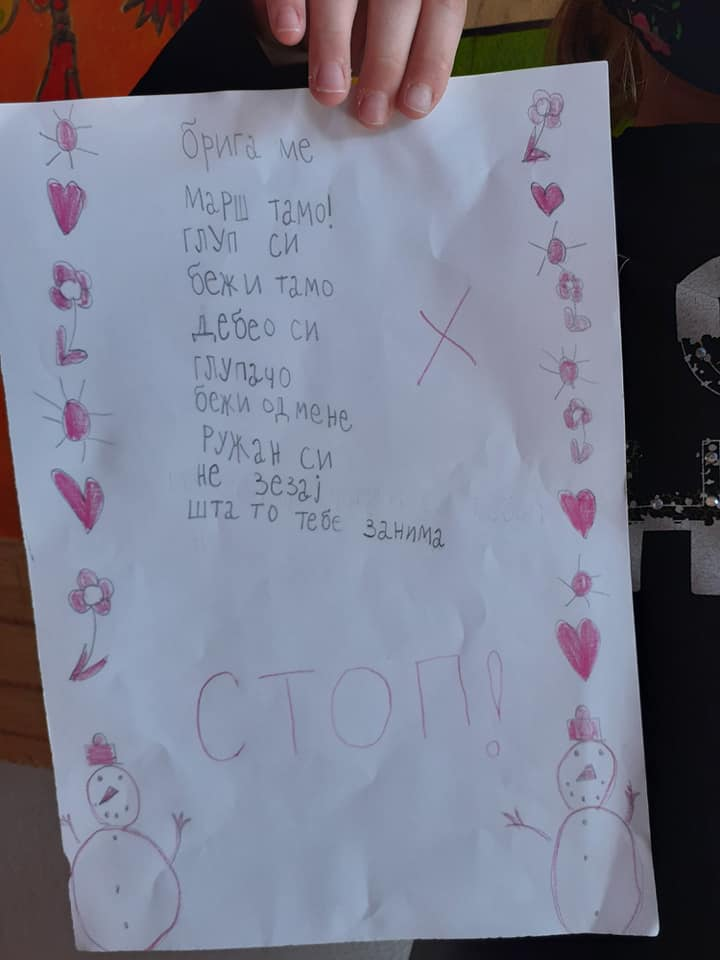 брига ме
марш тамо!
глуп си
бежи тамо
дебео си
глупачо
бежи од мене
ружан си
не зезај
шта то тебе занима
СТОП!